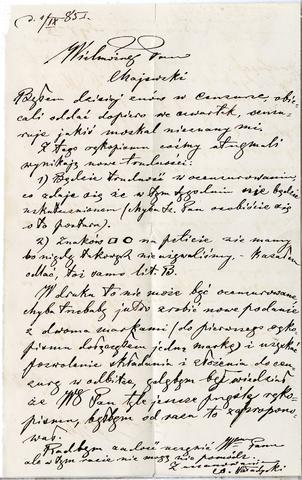 d. 1/IX 85 r.
Wielmożny Pan
Majewski
Byłem dzisiaj znów w cenzurze, obie-
cali oddać dopiero we czwartek, cenzu-
ruje jakiś moskal nieznany mi.
Z tego rękopismu cośmy otrzymali
wynikają nowe trudności:
1) Będzie trudność w ocenzurowaniu,
co zdaje się że w tym tygodniu nie będzie
uskutecznionem (chyba Sz. Pan osobiście się
o to postara).
2) Znaków □ ◇ na petycie nie mamy
bo nigdy takowych nie używaliśmy. - Kazałem
odlać, toż samo lit. B.
W druku to nie może być ocenzurowane
chyba trzeba jutro zrobić nowe podanie
z dwoma markami (do pierwszego ręko-
pismu dołączyłem jedną markę) i uzyskać
pozwolenie składania i złożenia do cen-
zury w odbitce, gdybym był wiedział
że WPan tyle jeszcze przyśle ręko-
pismu, byłbym od razu to zapropono-
wał.
Radbym zadość uczynić WPanu
ale w tym razie nie mogę nic pomódz
Z uszanowaniem